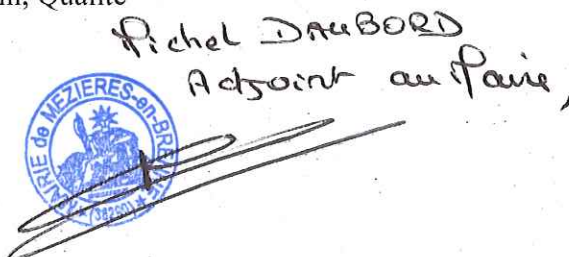 Qualité
Michel DAUBORD
Adjoint au Maire,
MAIRIE de MEZIERES-en-BRENNE